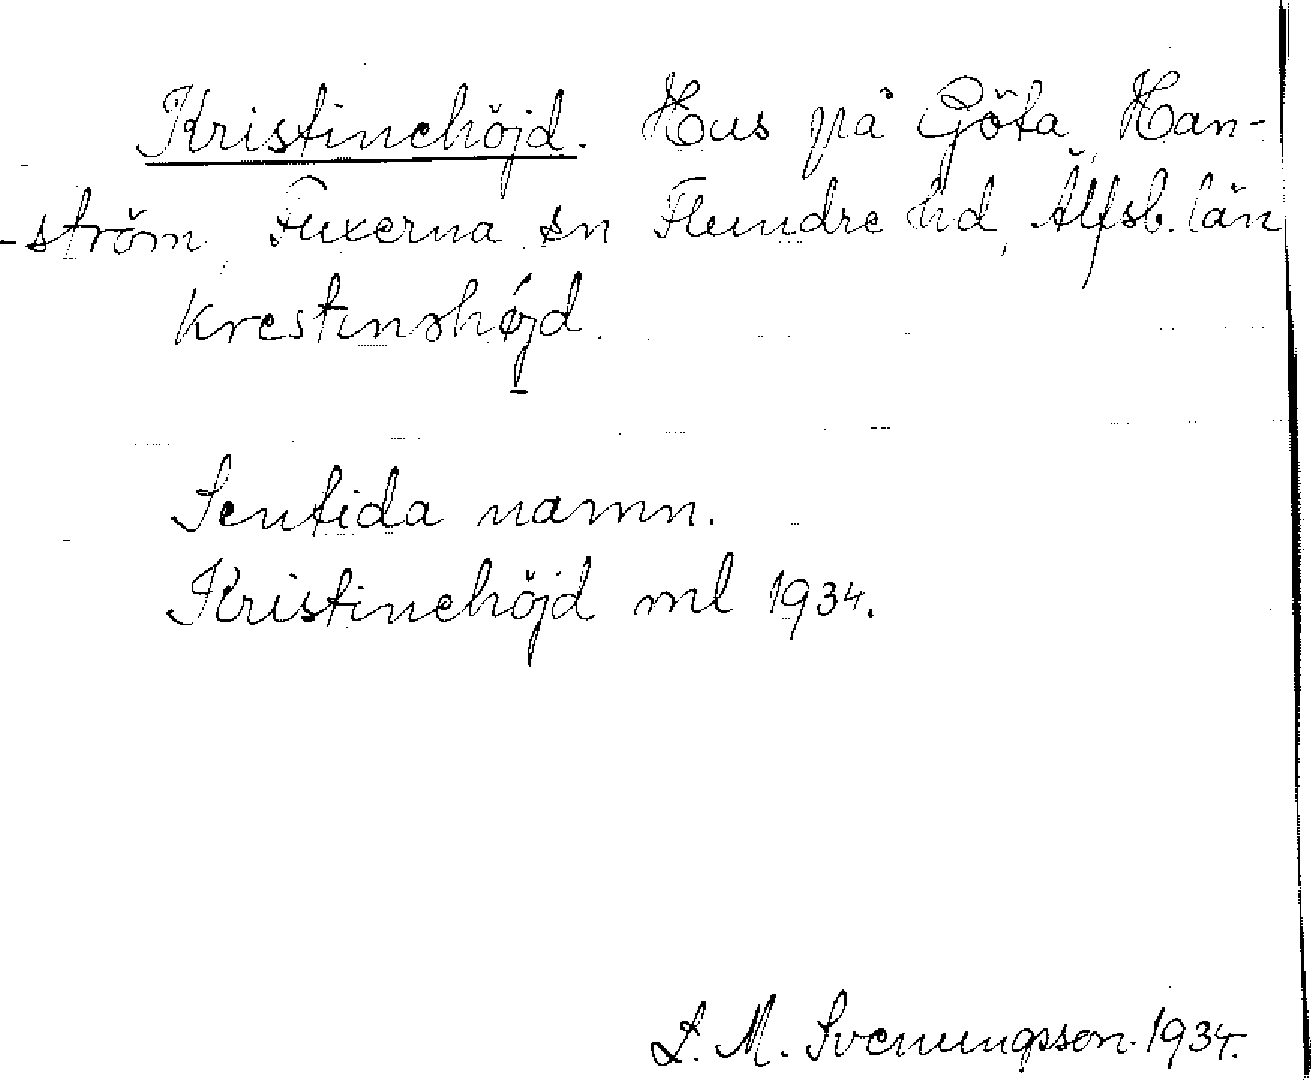 Kristinehöjd. Hus på Göta, Han-
-ström, Fuxerna sn Flundre hd, Älfsb. län
krestinəhǿjd.
Sentida namn.
Kristinehöjd ml 1934.
L. M. Svenungsson 1934.